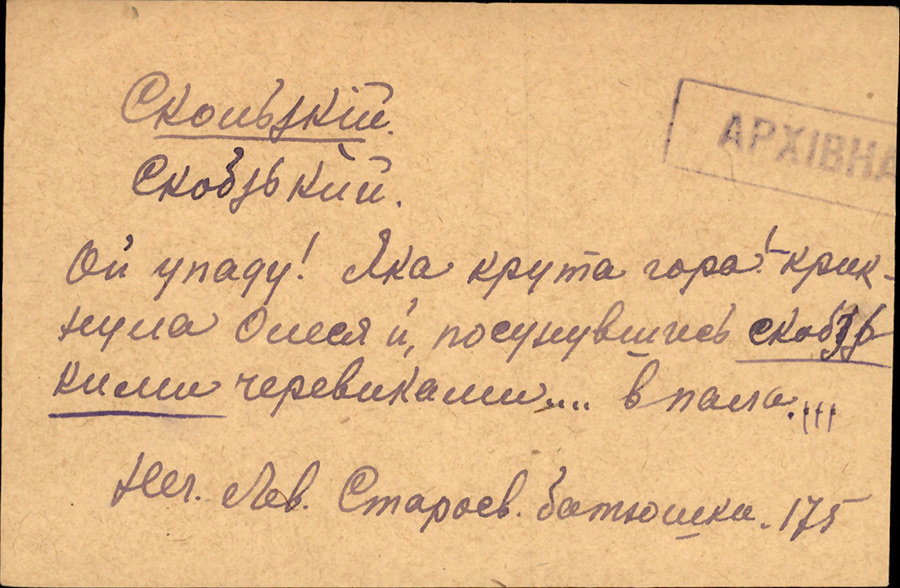 Скользкій.
АРХІВНА
Скобзький.
Ой упаду! Яка крута гора! – крик-
нула Олеся й, посунувшись скобзь-
кими черевиками.... впала.
Неч. Лев. Старосв. батюшки. 175